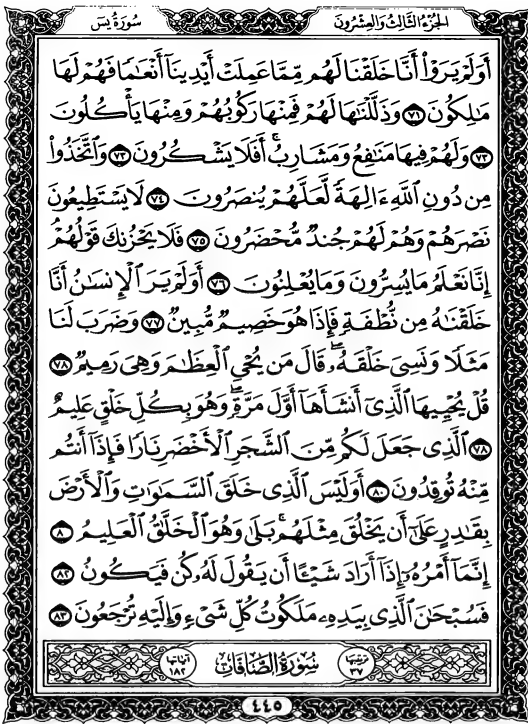 الجزء الثالث والعشرون سورة يس
أَوَلَمْ يَرَوْا۟ أَنَّا خَلَقْنَا لَهُم مِّمَّا عَمِلَتْ أَيْدِينَآ أَنْعَـٰمًا فَهُمْ لَهَا
مَـٰلِكُونَ ٧١ وَذَلَّلْنَـٰهَا لَهُمْ فَمِنْهَا رَكُوبُهُمْ وَمِنْهَا يَأْكُلُونَ
٧٢ وَلَهُمْ فِيهَا مَنَـٰفِعُ وَمَشَارِبُ ۖ أَفَلَا يَشْكُرُونَ ٧٣ وَٱتَّخَذُوا۟
مِن دُونِ ٱللَّهِ ءَالِهَةً لَّعَلَّهُمْ يُنصَرُونَ ٧٤ لَا يَسْتَطِيعُونَ
نَصْرَهُمْ وَهُمْ لَهُمْ جُندٌ مُّحْضَرُونَ ٧٥ فَلَا يَحْزُنكَ قَوْلُهُمْ ۘ
إِنَّا نَعْلَمُ مَا يُسِرُّونَ وَمَا يُعْلِنُونَ ٧٦ أَوَلَمْ يَرَ ٱلْإِنسَـٰنُ أَنَّا
خَلَقْنَـٰهُ مِن نُّطْفَةٍ فَإِذَا هُوَ خَصِيمٌ مُّبِينٌ ٧٧ وَضَرَبَ لَنَا
مَثَلًا وَنَسِىَ خَلْقَهُۥ ۖ قَالَ مَن يُحْىِ ٱلْعِظَـٰمَ وَهِىَ رَمِيمٌ ٧٨
قُلْ يُحْيِيهَا ٱلَّذِىٓ أَنشَأَهَآ أَوَّلَ مَرَّةٍ ۖ وَهُوَ بِكُلِّ خَلْقٍ عَلِيمٌ
٧٨ ٱلَّذِى جَعَلَ لَكُم مِّنَ ٱلشَّجَرِ ٱلْأَخْضَرِ نَارًا فَإِذَآ أَنتُم
مِّنْهُ تُوقِدُونَ ٨٠ أَوَلَيْسَ ٱلَّذِى خَلَقَ ٱلسَّمَـٰوَٰتِ وَٱلْأَرْضَ
بِقَـٰدِرٍ عَلَىٰٓ أَن يَخْلُقَ مِثْلَهُم ۚ بَلَىٰ وَهُوَ ٱلْخَلَّـٰقُ ٱلْعَلِيمُ ٨٠
إِنَّمَآ أَمْرُهُۥٓ إِذَآ أَرَادَ شَيْـًٔا أَن يَقُولَ لَهُۥ كُن فَيَكُونُ ٨٢
فَسُبْحَـٰنَ ٱلَّذِى بِيَدِهِۦ مَلَكُوتُ كُلِّ شَىْءٍ وَإِلَيْهِ تُرْجَعُونَ ٨٣
ترتيبها ٣٧ سورة الصافات آياتها ١٨٢
٤٤٥